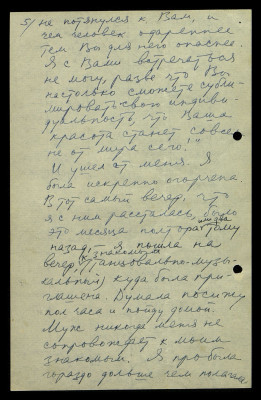 5/ не потянулся к Вам, и
чем человек одареннее
тем Вы для него опаснее.
Я с Вами встречаться
не могу, разве что Вы
настолько сможете субли-
мировать свою индиви-
дуальность, что Ваша
красота станет совсем
не от мира сего!"
И ушел от меня. Я
была искренно огорчена
В тот самый вечер, что
я с ним рассталась, было
это месяца полтора тому
назад, — я пошла на
вечер, (танцовально-музы-
кальный) куда была при-
глашена. Думала посижу
пол часа и пойду домой.
Муж никогда меня не
сопровождает к моим
знакомым. Я пробыла
гораздо дольше чем полагала